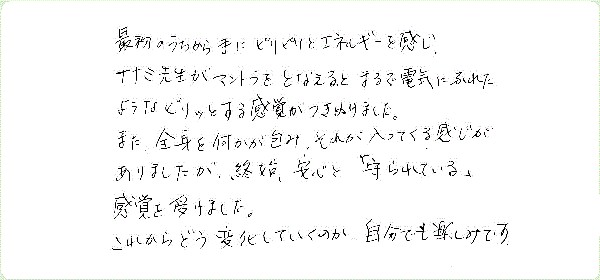 最初のうちから手にピリピリとエネルギーを感じ、
ナナミ先生がマントラをとなえるとまるで電気にふれた
ようなビリッとする感覚がつきぬけました。
また、全身を何かが包み、それが入ってくる感じが
ありましたが、終始、安心と「守られている」
感覚を受けました。
これからどう変化していくのか、自分でも楽しみです